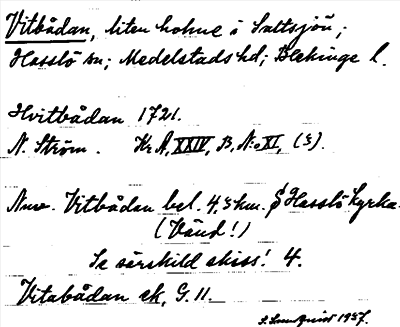 Vitbådan, liten holme i Saltsjön;
Hasslö sn; Medelstads hd; Blekinge l.
Hvitbådan 1721.
N. Ström. Kr A, XXIV, B, No XI, (§).
Nuv. Vitbådan bel. 4,5 km. Hasslö kyrka.
(Vänd!)
Se särskild skiss! 4.
Vitabådan ek, G. 11.
1937.